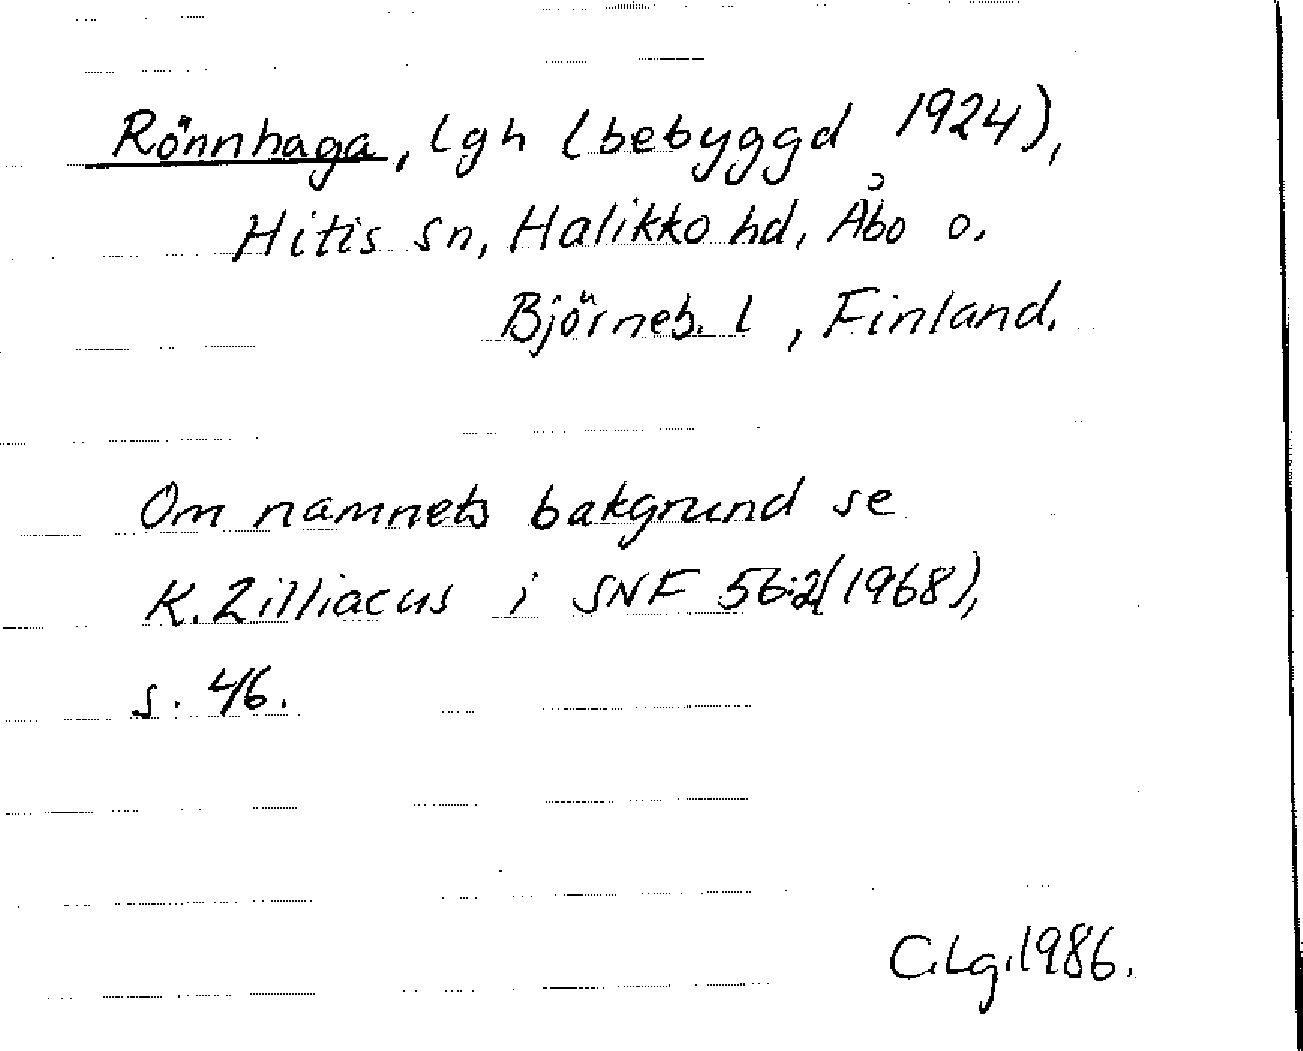 Rönnhaga, lgh (bebyggd 1924),
Hitis sn, Halikko hd, Åbo o.
Björneb. l, Finland.
Om namnets bakgrund se
K. Zilliacus i SNF 56:2 (1968),
s. 46.
C.Lg. 1986.